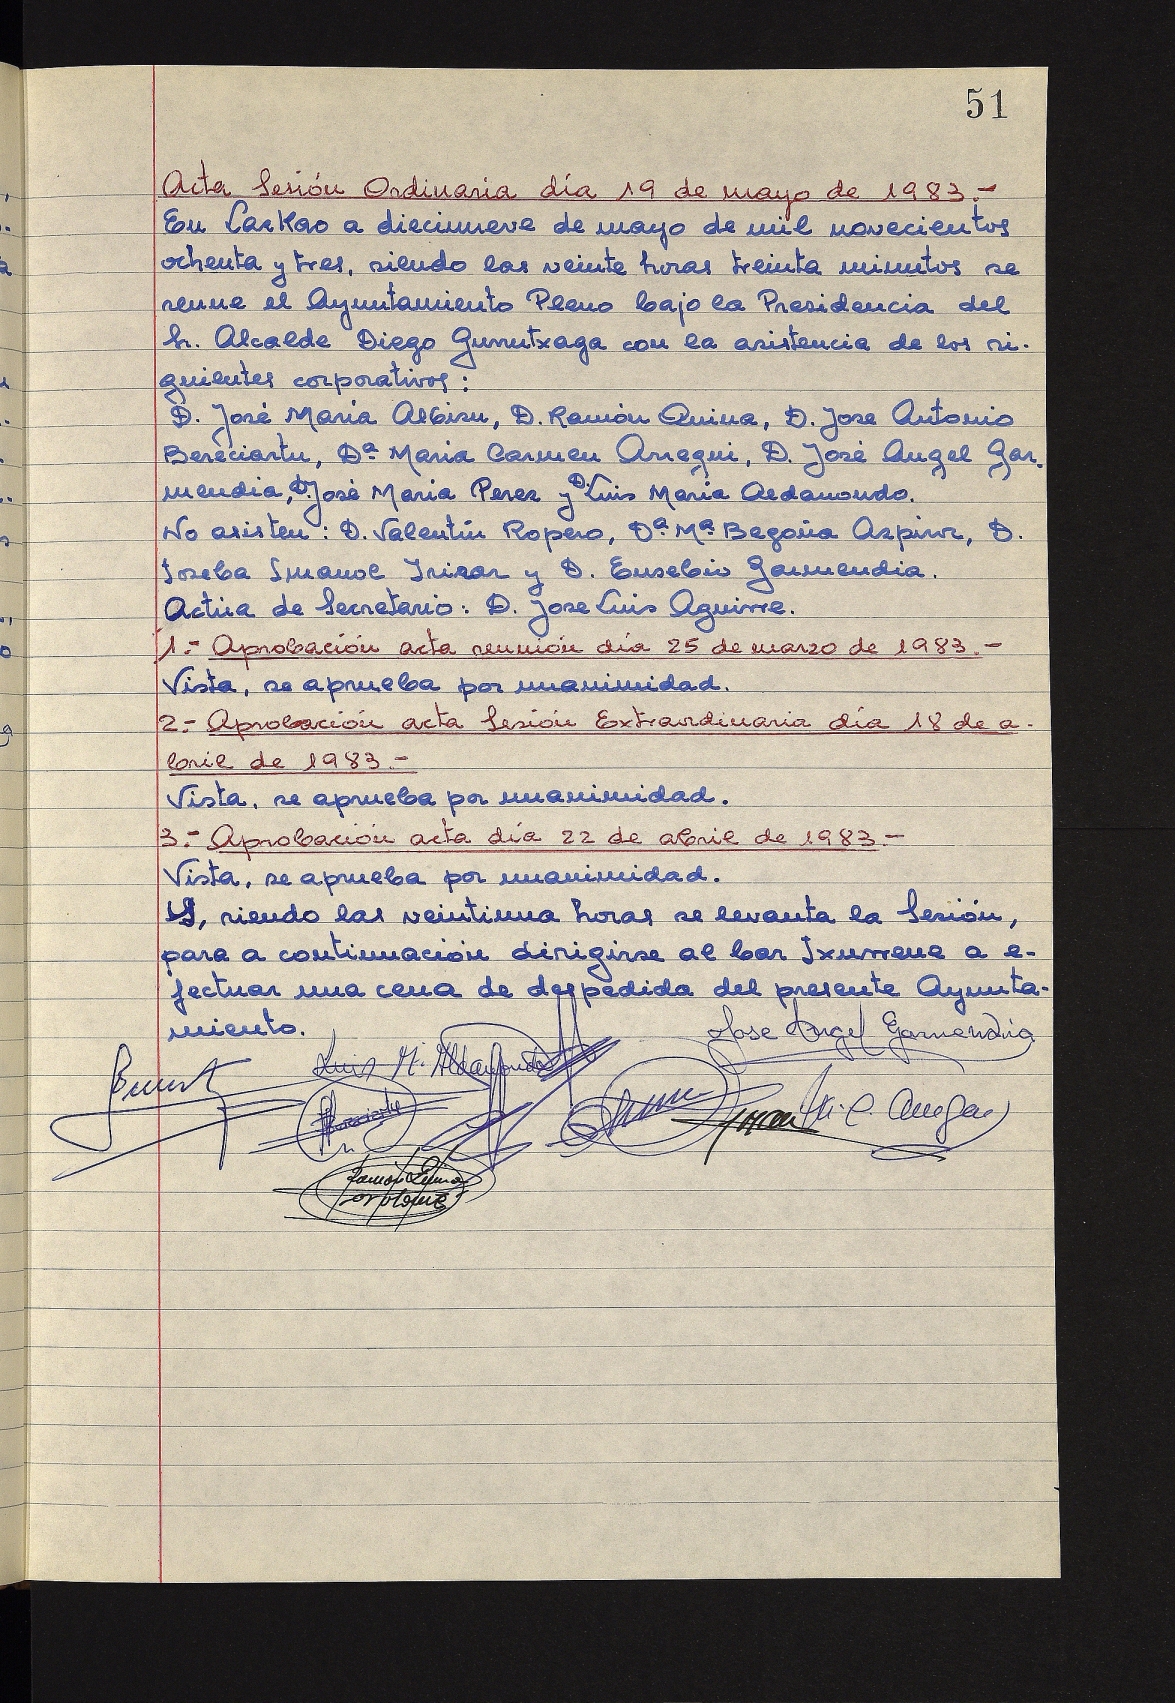 51
Acta Sesión Ordinaria día 19 de mayo de 1983.-
En Lazkao a diecinueve de mayo de mil novecientos
ochenta y tres, siendo las veinte horas treinta minutos se
reune el Ayuntamiento Pleno bajo la Presidencia del
Sr. Alcalde Diego Gurrutxaga con la asistencia de los si-
guientes corporativos:
D. José María Albisu, D. Ramón Quina, D. Jose Antonio
Bereciartu, Dª María Carmen Arregui, D. José Angel Gar-
mendia, D. José María Perez y D. Luis María Aldanondo.
No asisten: D. Valentín Ropero, Dª Mª Begoña Azpiroz, D.
Joseba Imanol Irizar y D. Eusebio Garmendia.
Actúa de Secretario: D. Jose Luis Aguirre.
1.- Aprobación acta reunión día 25 de marzo de 1983.-
Vista, se aprueba por unanimidad.
2.- Aprobación acta Sesión Extraordinaria día 18 de a-
bril de 1983.-
Vista, se aprueba por unanimidad.
3.- Aprobación acta día 22 de abril de 1983.-
Vista, se aprueba por unanimidad.
Y, siendo las veintiuna horas se levanta la Sesión,
para a continuación dirigirse al bar Ixurrene a e-
fectuar una cena de despedida del presente Ayunta-
miento.
Jose Angel Garmendia
Luis M. Aldanondo
M. C. Arregui